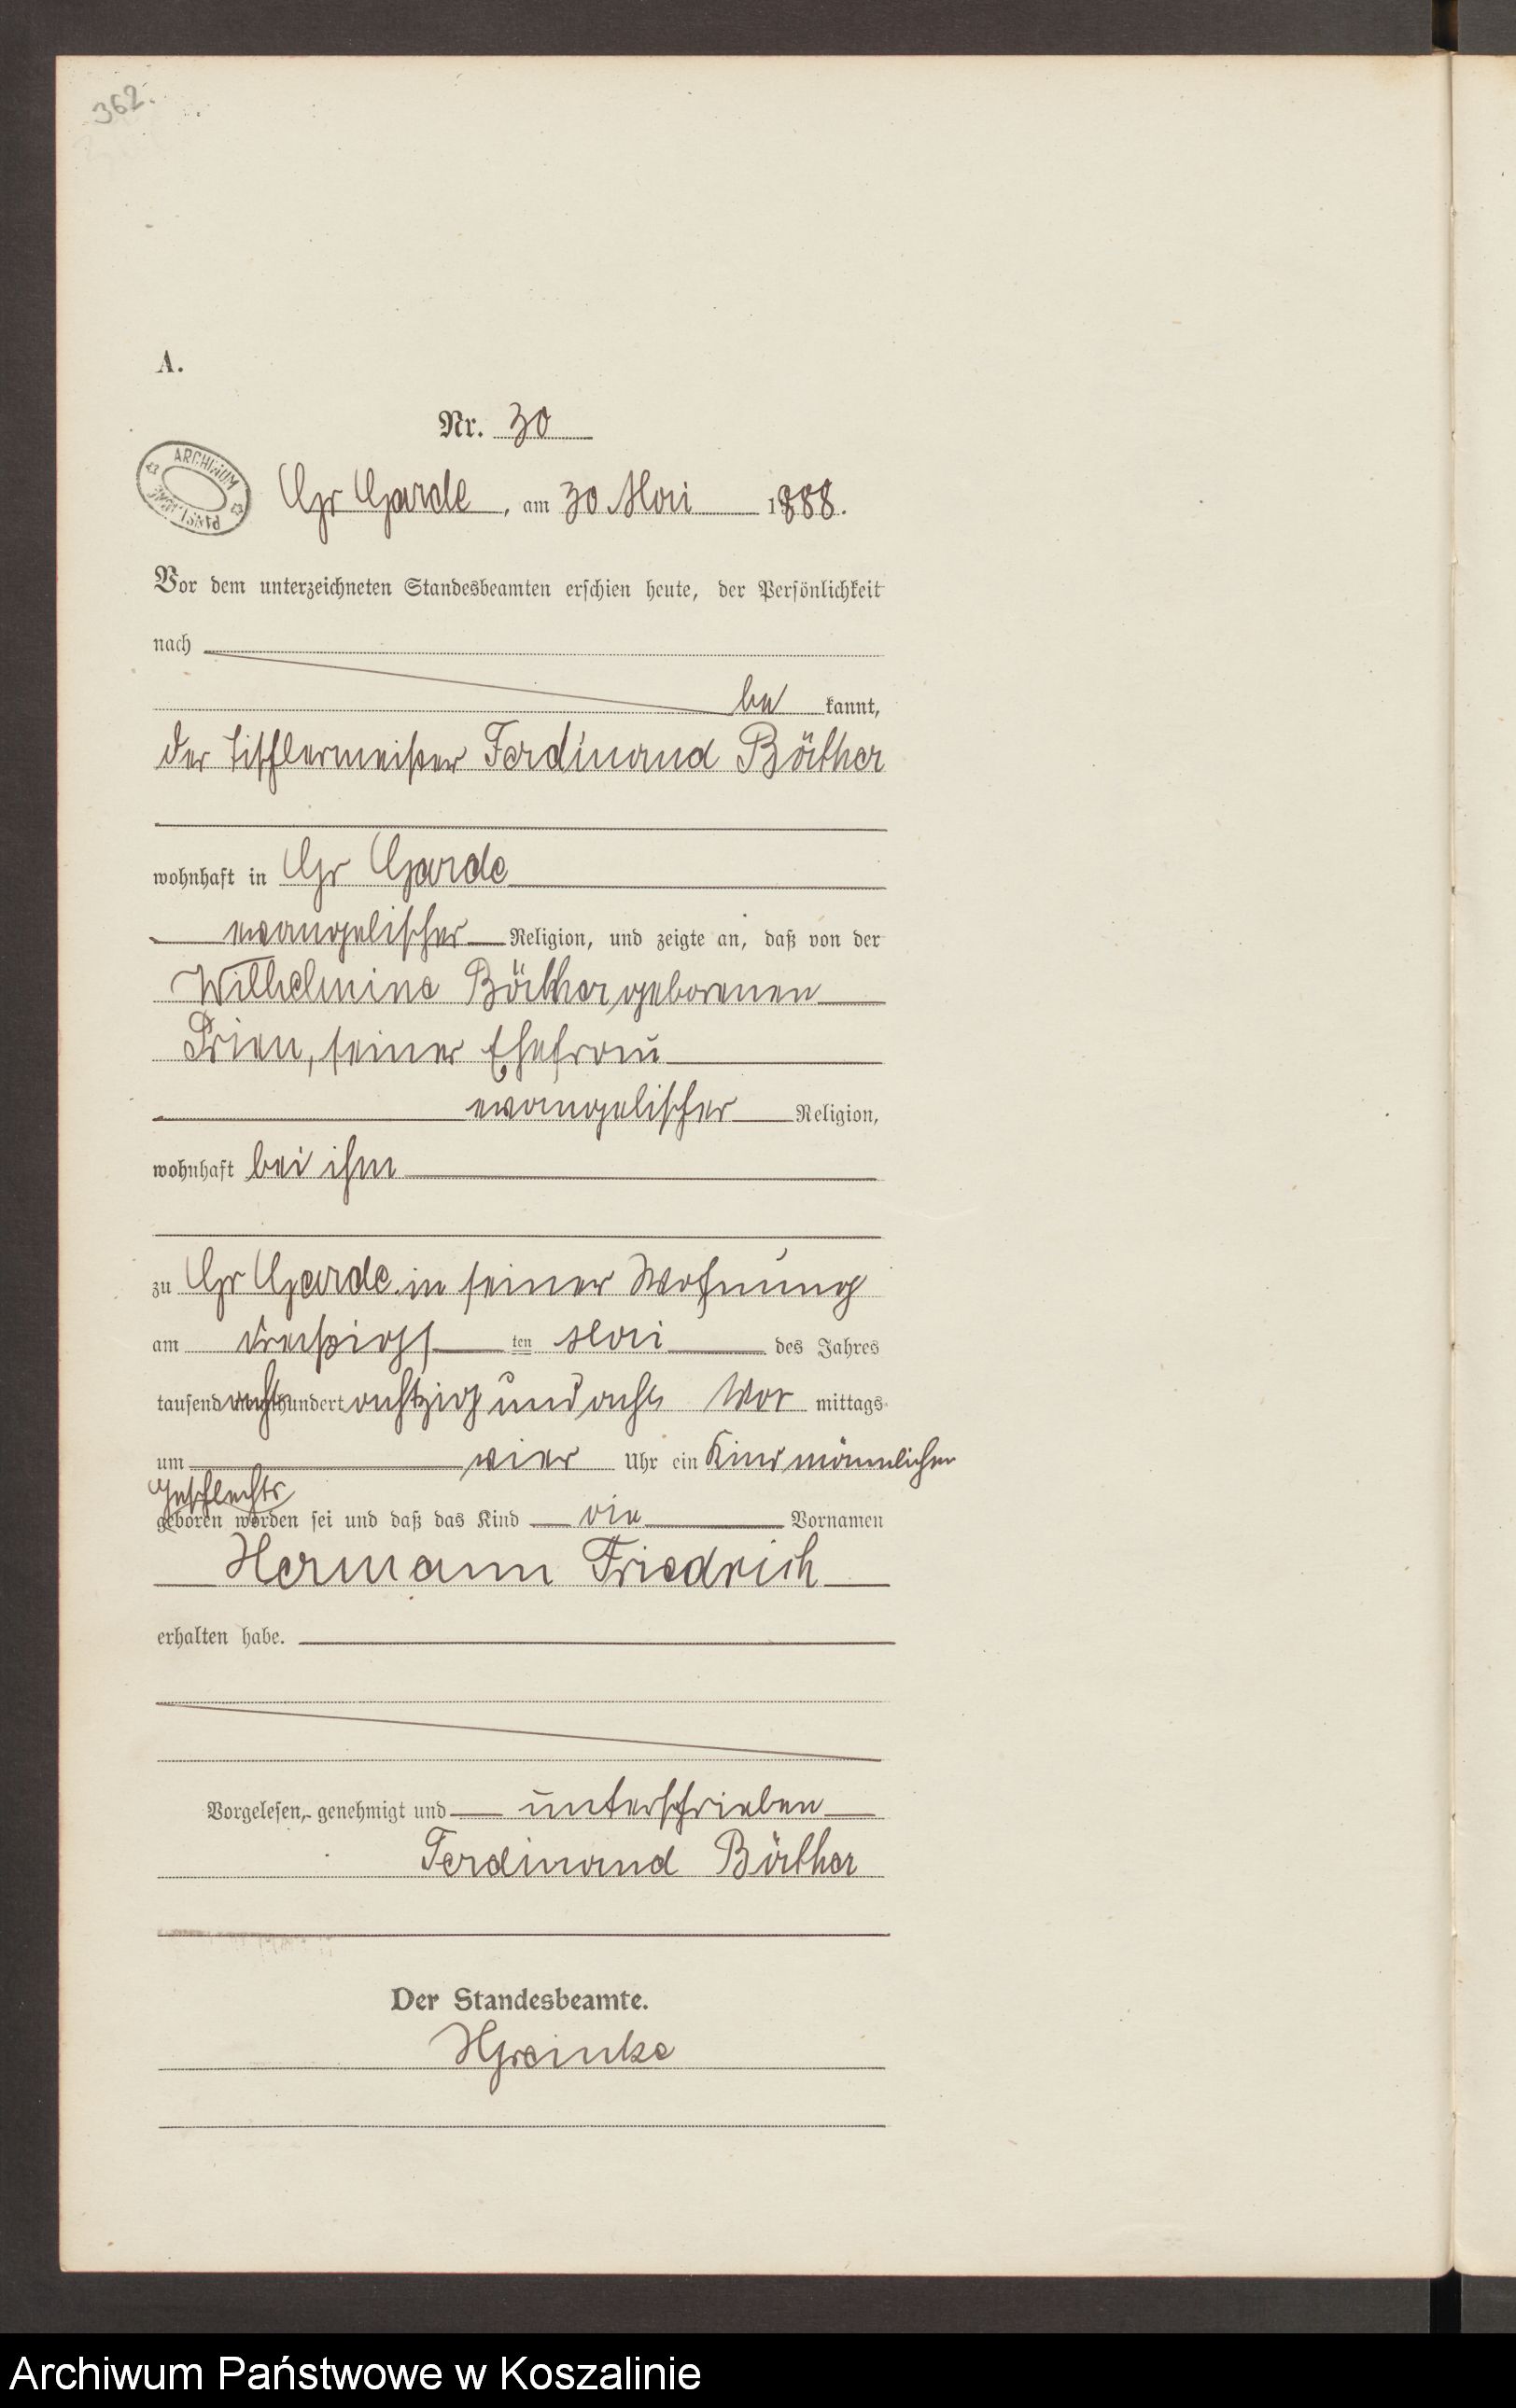 362.
A.
Nr. 30
ARCHIWUM
Gr Garde, am 30 Mai 1888.
Vor dem unterzeichneten Standesbeamten erschien heute, der Persönlichkeit
nach
be kannt,
der Tischlermeister Ferdinand Böther
wohnhaft in Gr Garde
evangelischer Religion, und zeigte an, daß von der
Wilhelmine Böther, geborenen
Prien, seiner Ehefrau
evangelischer Religion,
wohnhaft bei ihm
zu Gr Garde in seiner Wohnung
am dreißigst ten Mai des Jahres
tausend acht hundert achtzig und acht Vor mittags
um vier Uhr ein Kind männlichen
Geschlechts
geboren worden sei und daß das Kind die Vornamen
Hermann Friedrich
erhalten habe.
Vorgelesen, genehmigt und unterschrieben
Ferdinand Böther
Der Standesbeamte.
HGreinke
Archiwum Państwowe w Koszalinie